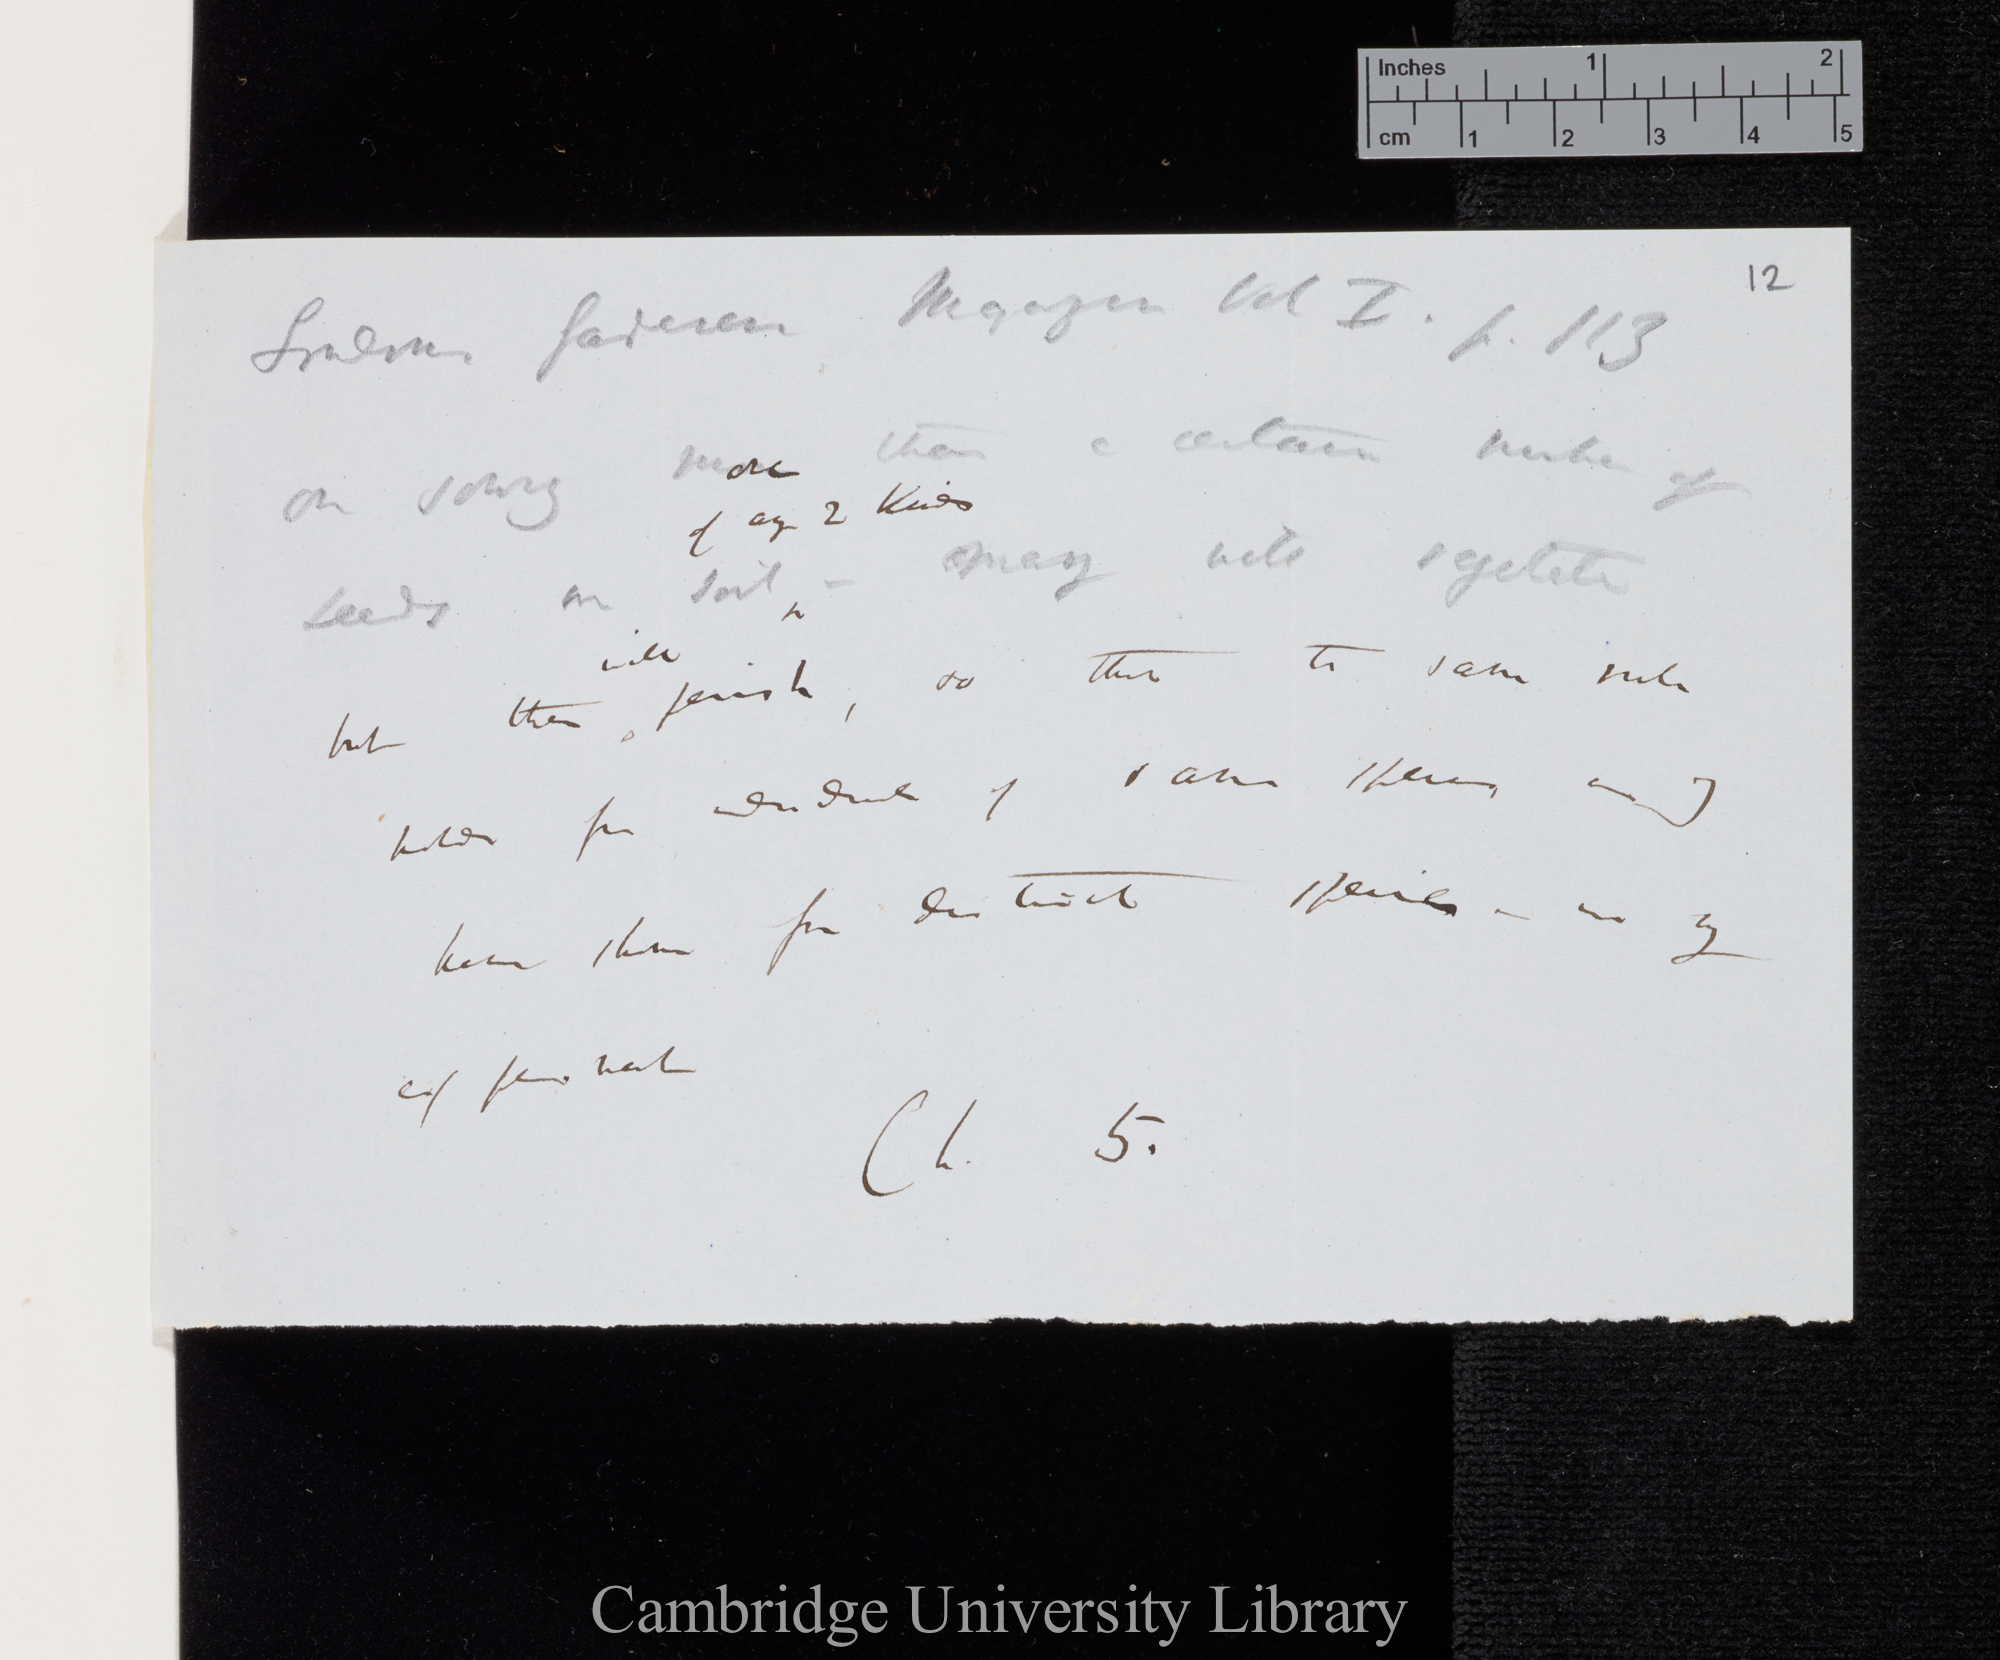 Inches 1 2
cm 1 2 3 4 5
12
Loudons Gardeners Magazine Vol I. p. 113
on sowing more than a certain number of
of any 2 kinds
seeds in soil – many will vegetate
will
but then perish, so that the same rule
holds for individuals of same species, as
have shown for distinct species – in my
experiment
Ch. 5.
Cambridge University Library